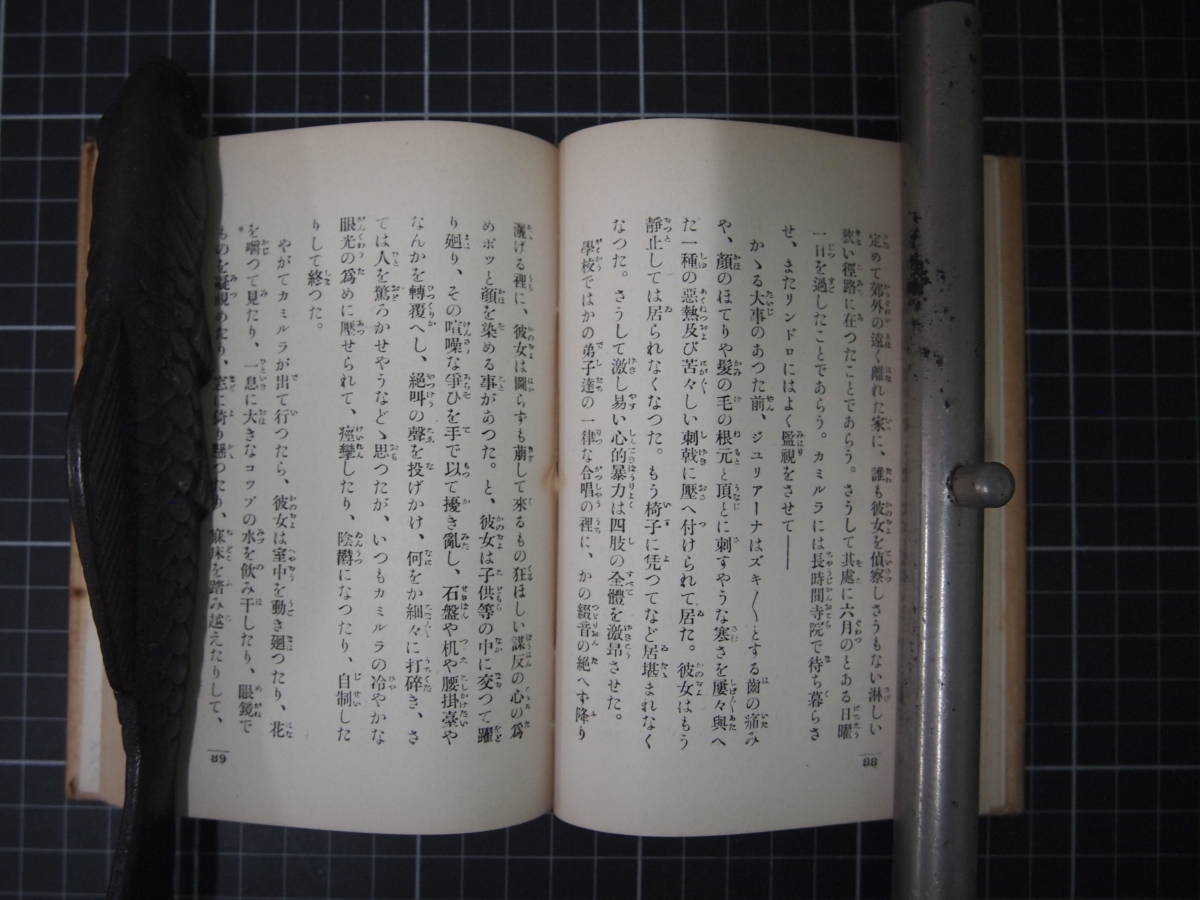 定めて郊外の遠く離れた家に、誰も彼女を偵察しさうもない淋しい
狹い徑路に在つたことであらう。さうして其處に六月のとある日曜
一日を過したことであらう。カミルラには長時間寺院で待ち暮らさ
せ、またリンドロにはよく監視をさせて――
かゝる大事のあつた前、ジユリアーナはズキ〳〵とする齒の痛み
や、顏のほてりや髮の毛の根元と頂とに刺すやうな寒さを屢々與へ
た一種の惡熱及び苦々しい刺戟に壓へ付けられて居た。彼女はもう
靜止しては居られなくなつた。もう椅子に凭つてなど居堪まれなく
なつた。さうして激し易い心的暴力は四肢の全體を激昂させた。
學校ではかの弟子達の一律な合唱の裡に、かの綴音の絶へず降り
88
濺げる裡に、彼女は圖らずも萠して來るもの狂ほしい謀反の心の爲
めポツと顏を染める事があつた。と、彼女は子供等の中に交つて躍
り廻り、その喧噪な爭ひを手で以て擾き亂し、石盤や机や腰掛臺や
なんかを轉覆へし、絶叫の聲を投げかけ、何をか細々に打碎き、さ
ては人を驚ろかせやうなどゝ思つたが、いつもカミルラの冷やかな
眼光の爲めに壓せられて、痙攣したり、陰欝になつたり、自制した
りして終つた。
やがてカミルラが出て行つたら、彼女は室中を動き廻つたり、花
を嚙つて見たり、一息に大きなコツプの水を飮み干したり、眼鏡で
ものを凝視めたり、窓に倚り懸つたり、寐床を踏み越えたりして、
89